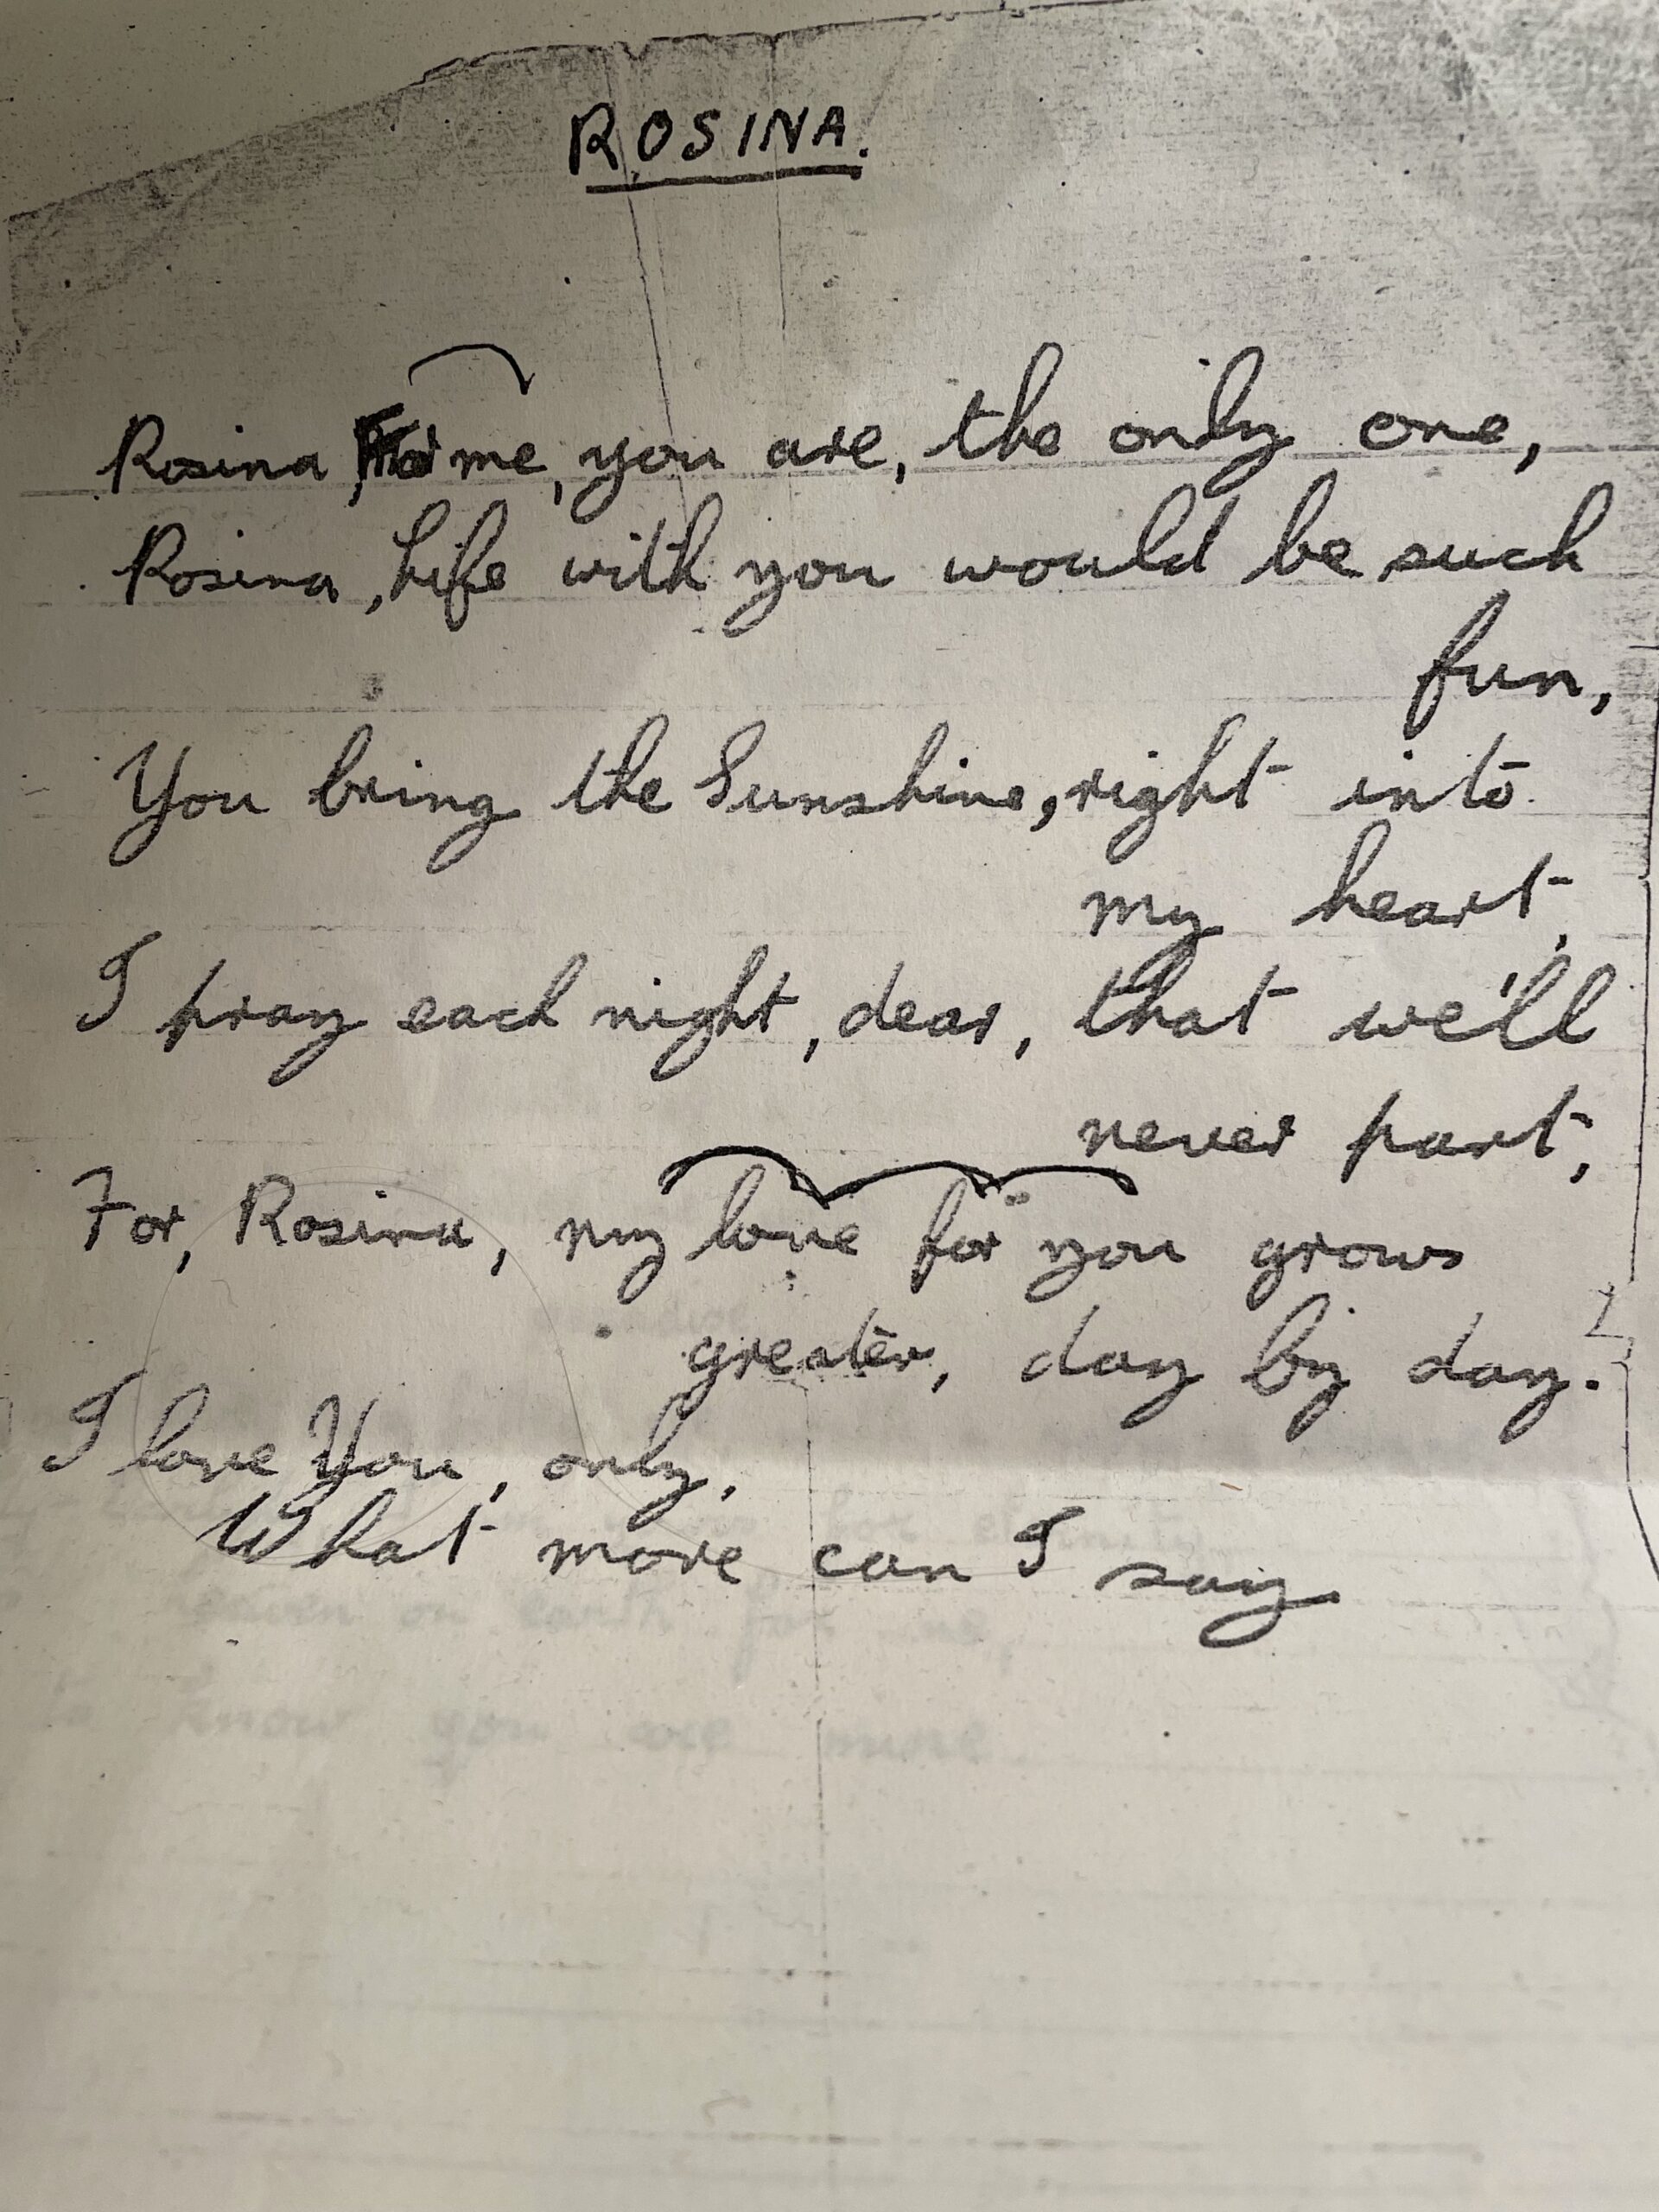 ROSINA.
Rosina, For me, you are, the only one,
Rosina, Life with you would be such
fun,
You bring the Sunshine, right into
my heart,
I pray each night, dear, that we'll
never part,
For, Rosina, my love for you grows
greater, day by day.
I love You, only,
What more can I say
heaven on earth for me,
know you are mine